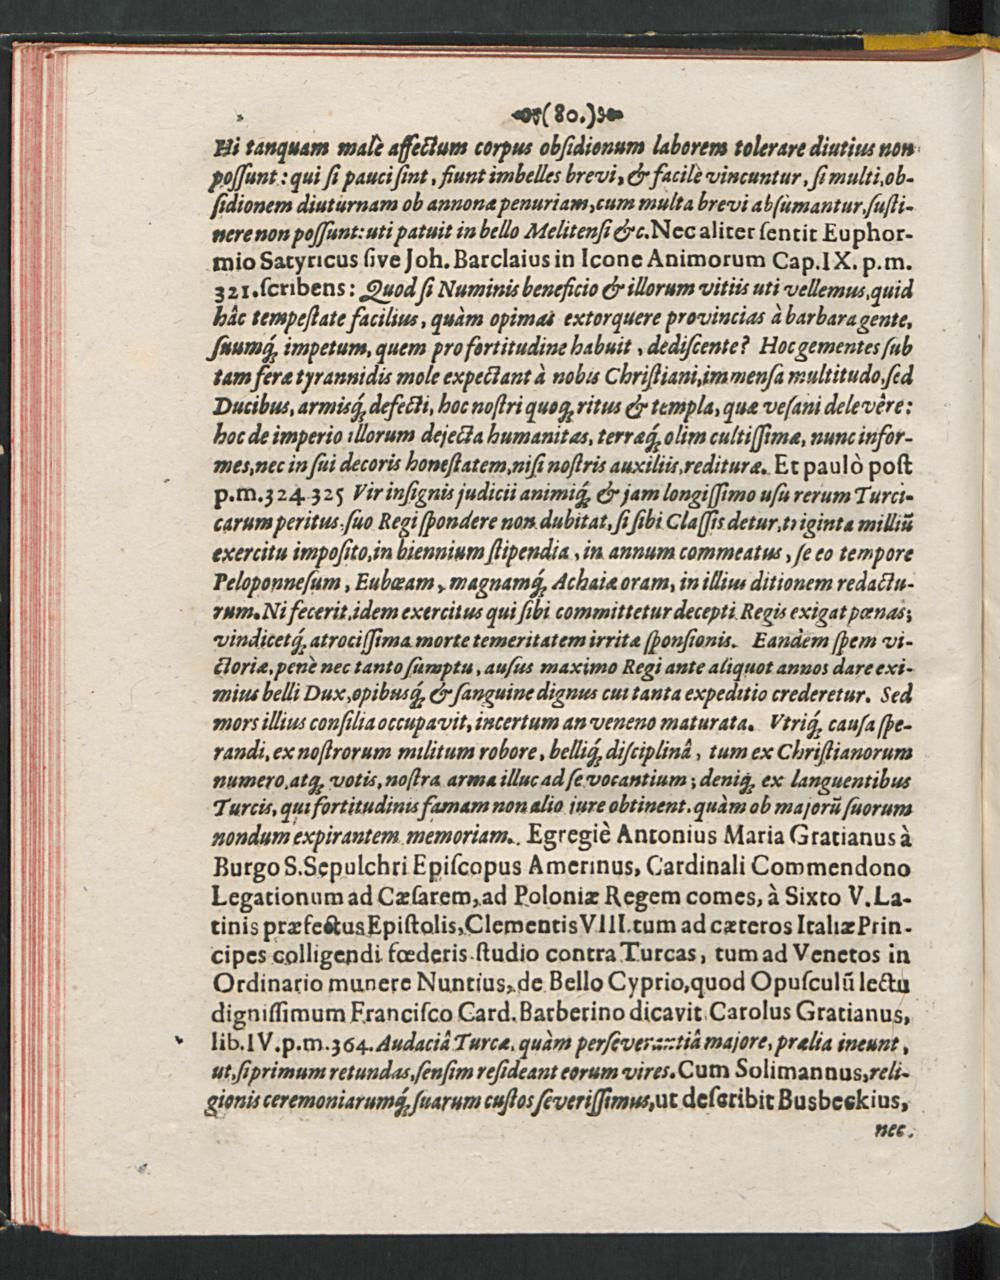 (80.)
Hi tanquam malè affectum corpus obſidionum laborem tolerare diutius non
poſſunt: qui ſi pauci ſint, fiunt imbelles brevi, & facilè vincuntur, ſi multi, ob-
ſidionem diuturnam ob annonæ penuriam, cum multa brevi abſumantur, ſuſti-
nere non poſſunt: uti patuit in bello Melitenſi &c. Nec aliter ſentit Euphor-
mio Satyricus ſive Joh. Barclaius in Icone Animorum Cap. IX. p. m.
321. ſcribens: Quod ſi Numinis beneficio & illorum vitiis uti vellemus, quid
hâc tempeſtate facilius, quàm opimas extorquere provincias à barbara gente,
ſuumq́; impetum, quem pro fortitudine habuit, dediſcente? Hoc gementes ſub
tam feræ tyrannidis mole expectant à nobis Chriſtiani, immenſa multitudo, ſed
Ducibus, armisq́; defecti, hoc noſtri quoq; ritus & templa, quæ veſani delevêre:
hoc de imperio illorum dejecta humanitas, terræq́; olim cultiſſimæ, nunc infor-
mes, nec in ſui decoris honeſtatem, niſi noſtris auxiliis, redituræ. Et paulò poſt
p. m. 324 325 Vir inſignis judicii animiq́; & jam longiſſimo uſu rerum Turci-
carum peritus, ſuo Regi ſpondere non dubitat, ſi ſibi Claſſis detur, triginta milliū
exercitu impoſito, in biennium ſtipendia, in annum commeatus, ſe eo tempore
Peloponneſum, Eubœam, magnamq́; Achaiæ oram, in illius ditionem redactu-
rum. Ni fecerit, idem exercitus qui ſibi committetur decepti Regis exigat pœnas;
vindicetq́; atrociſſima morte temeritatem irritæ ſponſionis. Eandem ſpem vi-
ctoriæ, penè nec tanto ſumptu, auſus maximo Regi ante aliquot annos dare exi-
mius belli Dux, opibusq́; & ſanguine dignus cui tanta expeditio crederetur. Sed
mors illius conſilia occupavit, incertum an veneno maturata. Vtriq́; cauſa ſpe-
randi, ex noſtrorum militum robore, belliq́; diſciplinâ, tum ex Chriſtianorum
numero, atq; votis, noſtra arma illuc ad ſe vocantium; deniq́; ex languentibus
Turcis, qui fortitudinis famam non alio jure obtinent, quàm ob majorū ſuorum
nondum expirantem memoriam. Egregiè Antonius Maria Gratianus à
Burgo S. Sepulchri Epiſcopus Amerinus, Cardinali Commendono
Legationum ad Cæſarem, ad Poloniæ Regem comes, à Sixto V. La-
tinis præfectus Epiſtolis, Clementis VIII. tum ad cæteros Italiæ Prin-
cipes colligendi fœderis ſtudio contra Turcas, tum ad Venetos in
Ordinario munere Nuntius, de Bello Cyprio, quod Opuſculū lectu
digniſſimum Franciſco Card. Barberino dicavit Carolus Gratianus,
lib. IV. p. m. 364. Audaciâ Turcæ, quàm perſeverantiâ majore, prælia ineunt,
ut, ſi primum retundas, ſenſim reſideant eorum vires. Cum Solimannus, reli-
gionis ceremoniarumq́; ſuarum cuſtos ſeveriſſimus, ut deſcribit Busbeckius,
nec.